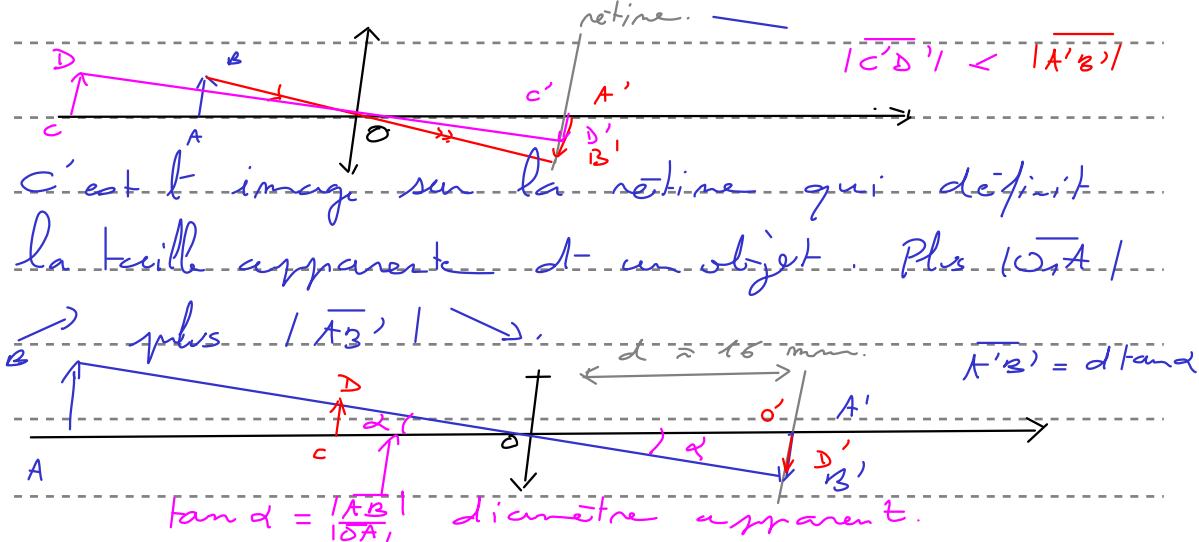 rétine.
D B |C'D'| < |A'B'|
C' A'
C A O D' B'
C'est l'image sur la rétine qui définit
la taille apparente d'un objet. Plus |O,A|
↗ plus |AB'| ↘.
B d ≈ 16 mm. A'B' = d tan α
D α O' A'
A C O α D' B'
tan α = |AB| / |OA| diamètre apparent.